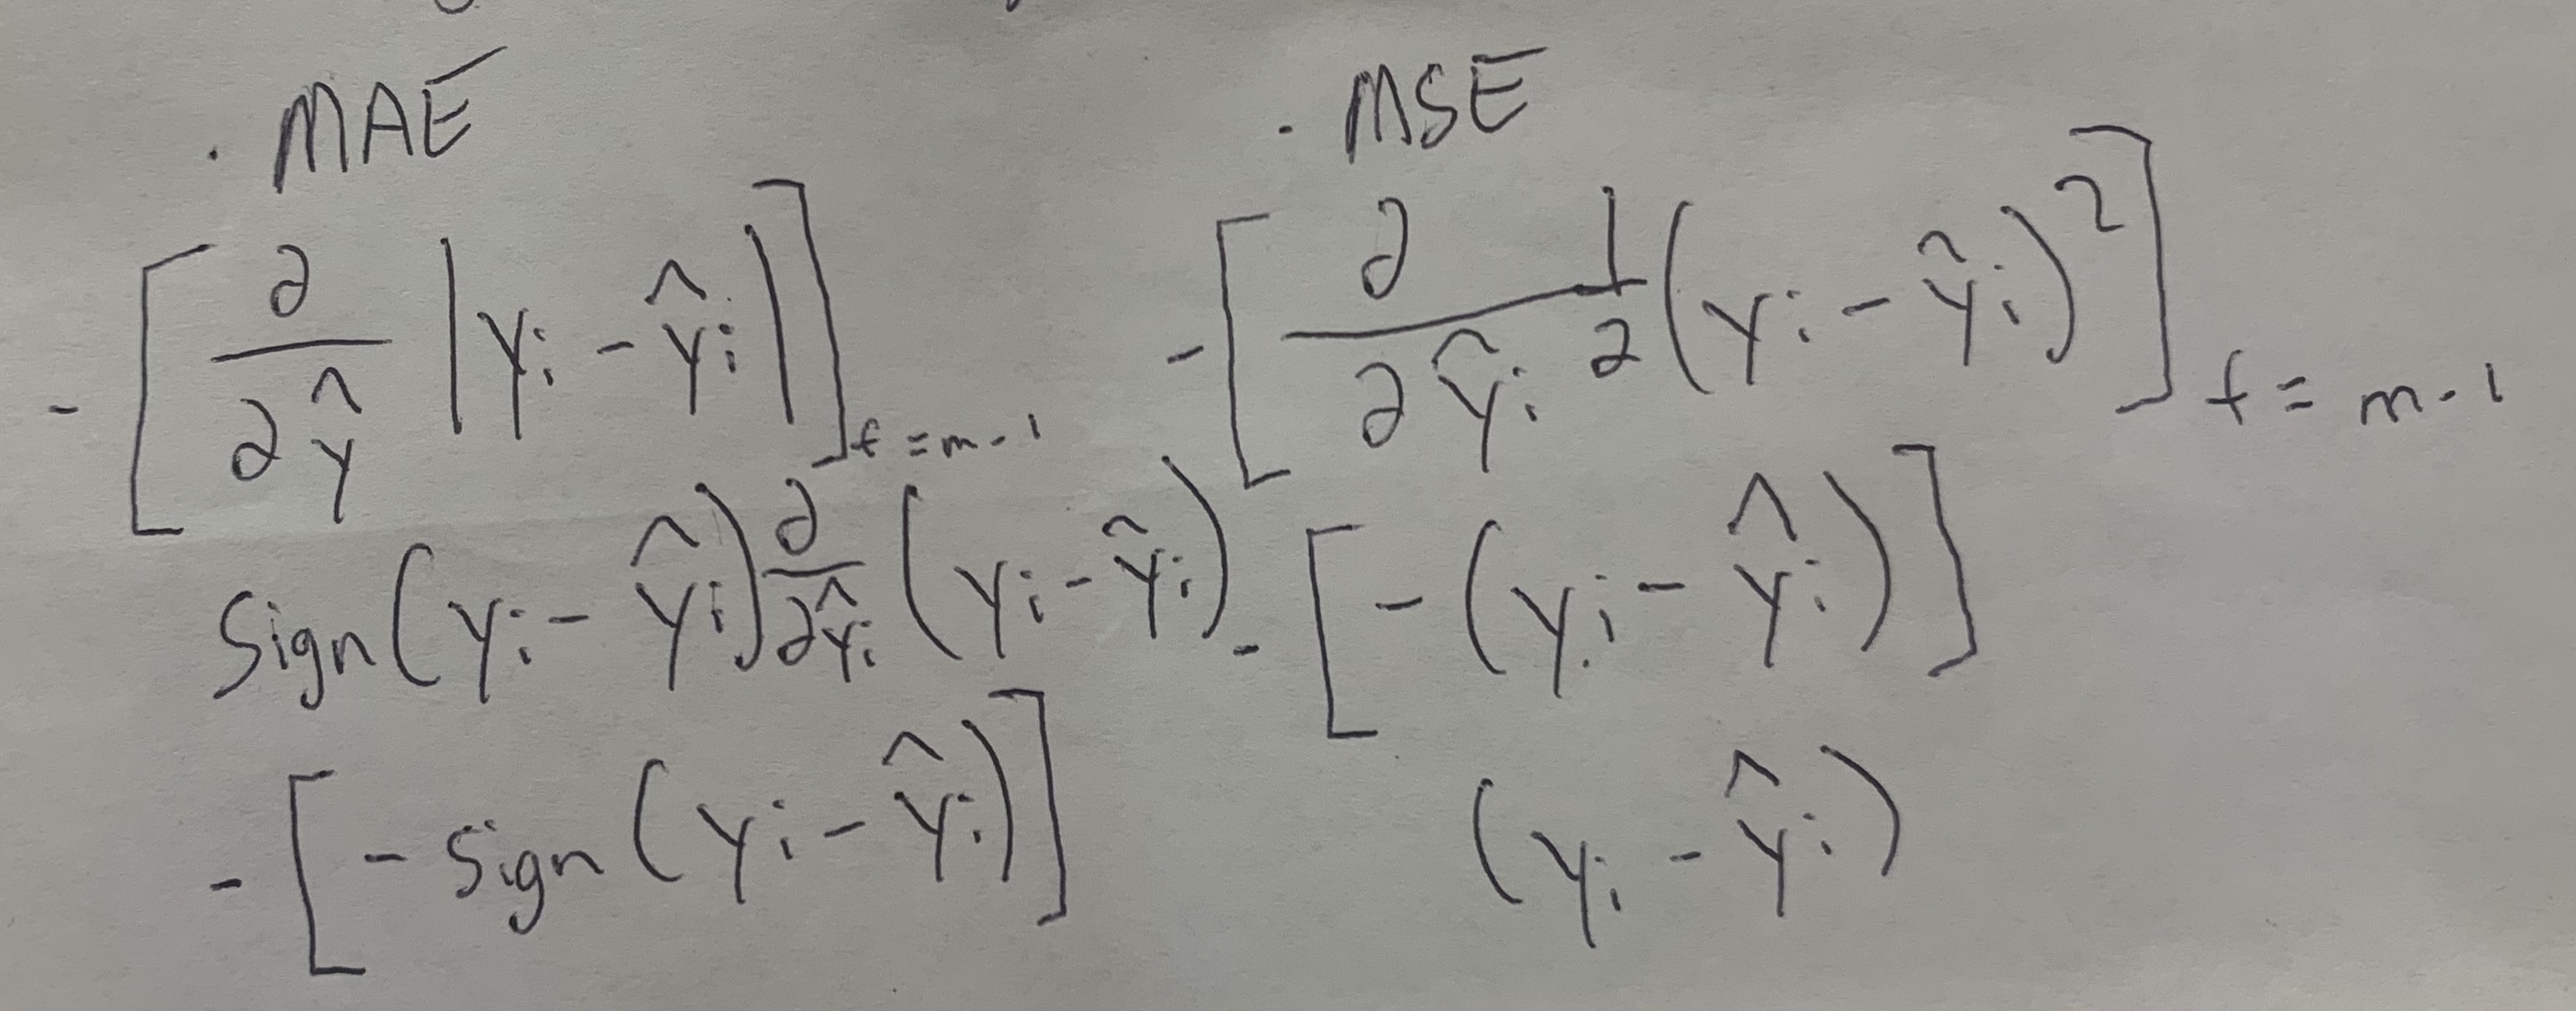 . MAE
- [ ∂/∂ŷ |yᵢ - ŷᵢ| ]f = m - 1
Sign(yᵢ - ŷᵢ) ∂/∂ŷᵢ (yᵢ - ŷᵢ)
- [ - Sign(yᵢ - ŷᵢ) ]
. MSE
- [ ∂/∂ŷᵢ 1/2 (yᵢ - ŷᵢ)² ]f = m - 1
- [ - (yᵢ - ŷᵢ) ]
(yᵢ - ŷᵢ)